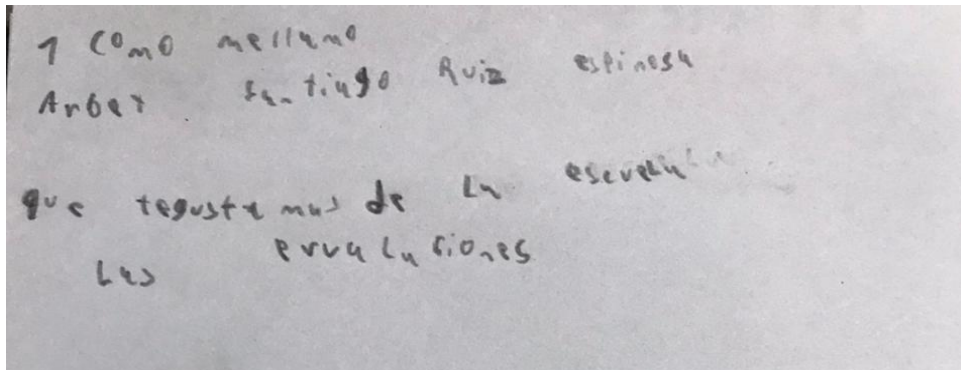 1 como mellamo
Arbey santiago Ruiz espinosa
que tegusta mas de La escuela
Las evvaluciones